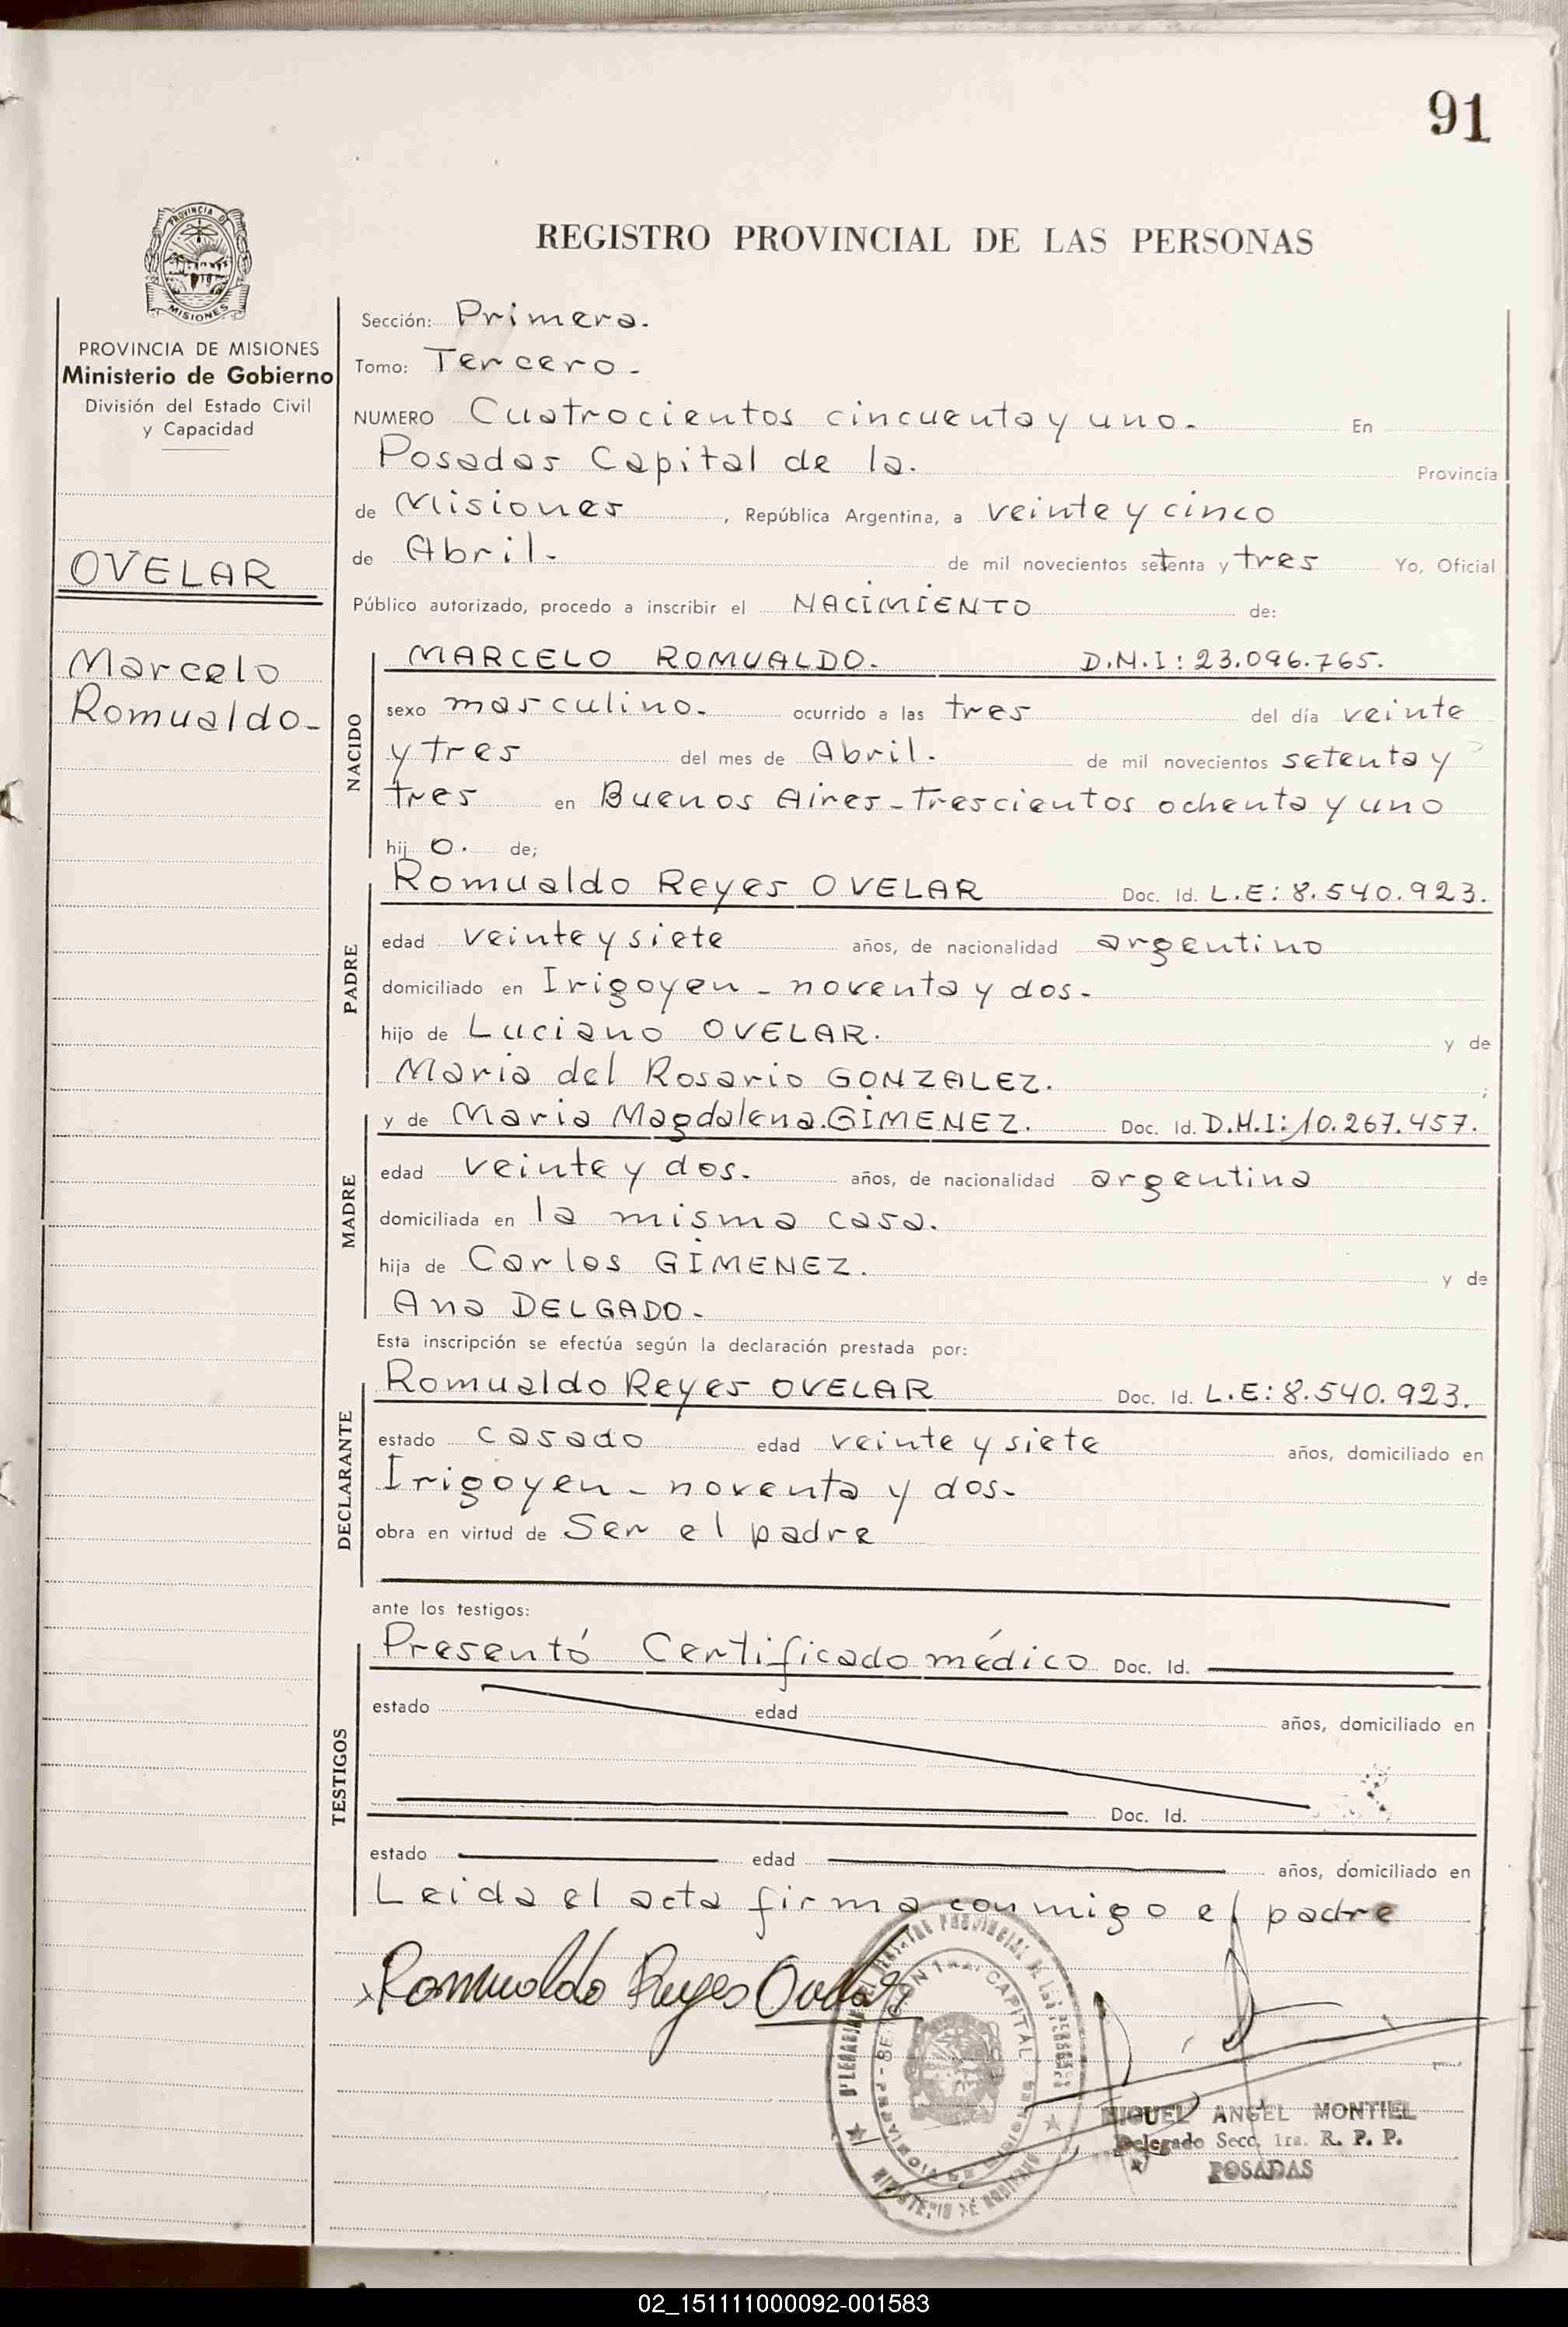 91
PROVINCIA DE
MISIONES
PROVINCIA DE MISIONES
Ministerio de Gobierno
División del Estado Civil
y Capacidad
OVELAR
Marcelo
Romualdo-
REGISTRO PROVINCIAL DE LAS PERSONAS
Sección: Primera.
Tomo: Tercero-
NUMERO Cuatrocientos cincuenta y uno. En
Posadas Capital de la. Provincia
de Misiones, República Argentina, a veinte y cinco
de Abril. de mil novecientos setenta y tres Yo, Oficial
Público autorizado, procedo a inscribir el NACIMIENTO de:
NACIDO
MARCELO ROMUALDO. D.N.I: 23.096.765.
sexo masculino. ocurrido a las tres del día veinte
y tres del mes de Abril. de mil novecientos setenta y
tres en Buenos Aires-trescientos ochenta y uno
hij o. de;
PADRE
Romualdo Reyes OVELAR Doc. Id. L.E: 8.540.923.
edad veinte y siete años, de nacionalidad argentino
domiciliado en Irigoyen - noventa y dos-
hijo de Luciano OVELAR. y de
Maria del Rosario GONZALEZ. ;
MADRE
y de Maria Magdalena GIMENEZ. Doc. Id. D.N.I: 10.267.457.
edad veinte y dos. años, de nacionalidad argentina
domiciliada en la misma casa.
hija de Carlos GIMENEZ. y de
Ana DELGADO-
Esta inscripción se efectúa según la declaración prestada por:
DECLARANTE
Romualdo Reyes OVELAR Doc. Id. L.E: 8.540.923.
estado casado edad veinte y siete años, domiciliado en
Irigoyen - noventa y dos-
obra en virtud de Ser el padre
ante los testigos:
TESTIGOS
Presentó Certificado médico Doc. Id.
estado edad años, domiciliado en
Doc. Id.
estado edad años, domiciliado en
Leida el acta firma conmigo el padre
Romualdo Reyes Ovelar
REGISTRO PROVINCIAL DE LAS PERSONAS
CAPITAL
MINISTERIO DE GOBIERNO
MIGUEL ANGEL MONTIEL
Delegado Secc. 1ra. R. P. P.
POSADAS
02_151111000092-001583